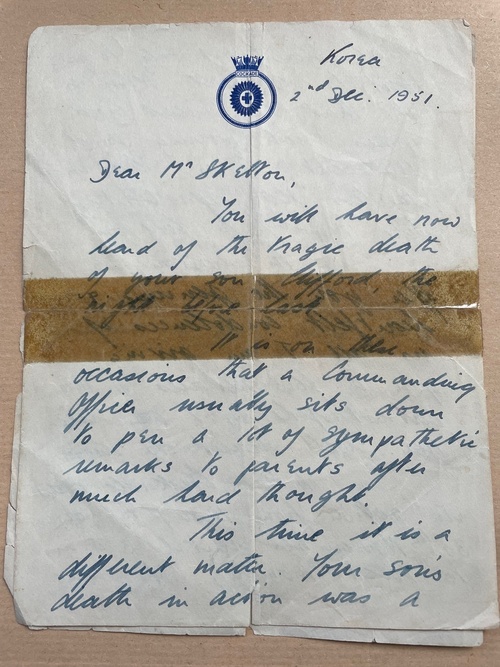 COCKADE
Korea
2nd Dec. 1951.
Dear Mr Skelton,
You will have now
heard of the tragic death
of your son Clifford, the
night before last.
It is on these
occasions that a Commanding
Officer usually sits down
to pen a lot of sympathetic
remarks to parents after
much hard thought.
This time it is a
different matter. Your son's
death in action was a